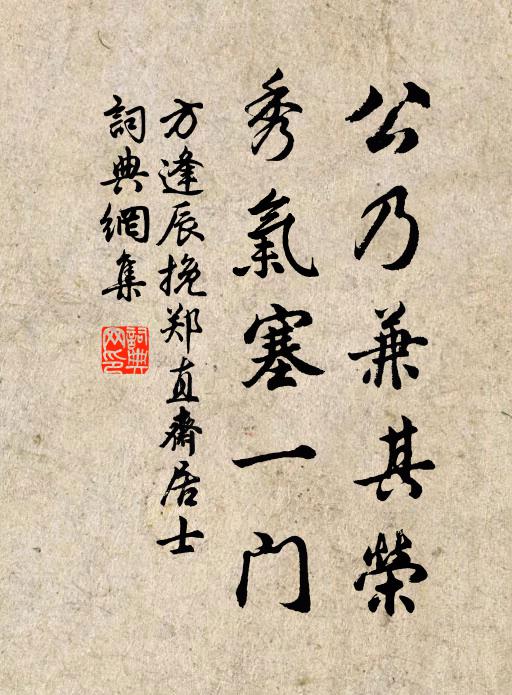 公乃兼其榮
秀氣塞一門
方逢辰挽郑直齋居士
詞典網集
詞典网印